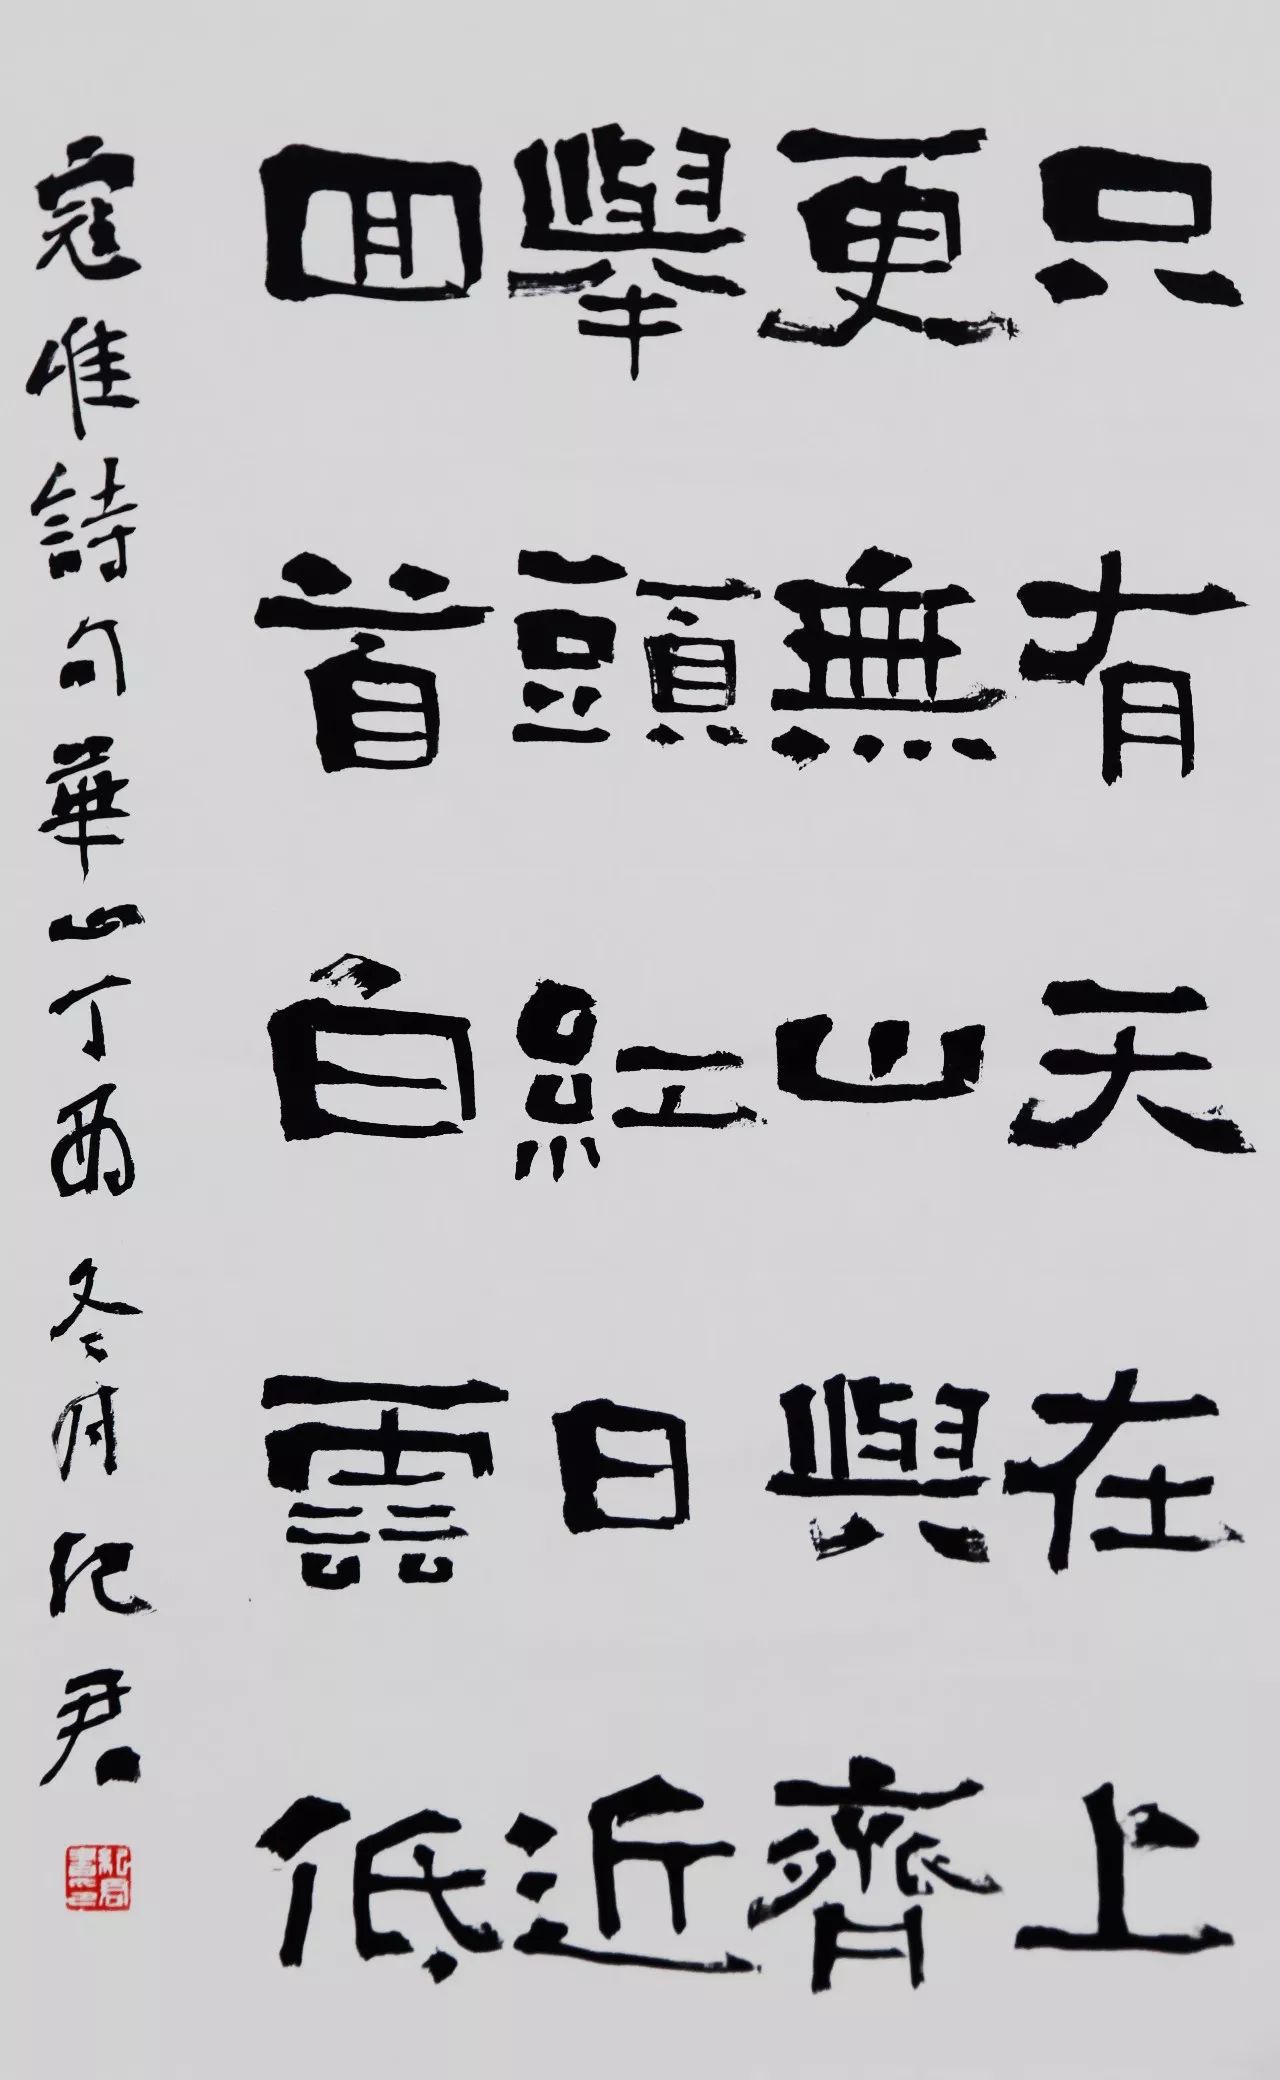 只有天在上
更無山與齊
舉頭紅日近
回首白雲低
寇准詩句華山丁酉冬月紀君